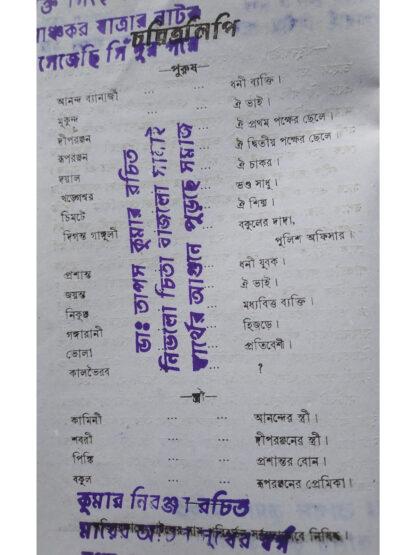 যাত্রার নাটক
সেজেছি সিঁদুর পরে
চরিত্রলিপি
—পুরুষ—
আনন্দ ব্যানার্জী ... ... ধনী ব্যক্তি।
মুকুন্দ ... ঐ ভাই।
দীপরঞ্জন ... ঐ প্রথম পক্ষের ছেলে।
রূপরঞ্জন ... ঐ দ্বিতীয় পক্ষের ছেলে।
দয়াল ... ঐ চাকর।
খড়্গেশ্বর ... ভণ্ড সাধু।
চিমটে ... ঐ শিষ্য।
দিগন্ত গাঙ্গুলী ... বকুলের দাদা,
পুলিশ অফিসার।
প্রশান্ত ... ধনী যুবক।
জয়ন্ত ... ঐ ভাই।
নিকুঞ্জ ... মধ্যবিত্ত ব্যক্তি।
গঙ্গারানী ... হিজড়ে।
ভোলা ... প্রতিবেশী।
কালভৈরব ... ?
ডাঃ তাপস কুমার রচিত
নিভলো চিতা বাজলো সানাই
স্বার্থের আগুনে পুড়ছে সমাজ
—স্ত্রী—
কামিনী ... ... আনন্দের স্ত্রী।
শবরী ... ... দীপরঞ্জনের স্ত্রী।
পিঙ্কি ... ... প্রশান্তর বোন।
বকুল ... ... রূপরঞ্জনের প্রেমিকা।
কুমার নিরঞ্জন রচিত
মায়ের
স্বর্গ
নিষিদ্ধ।